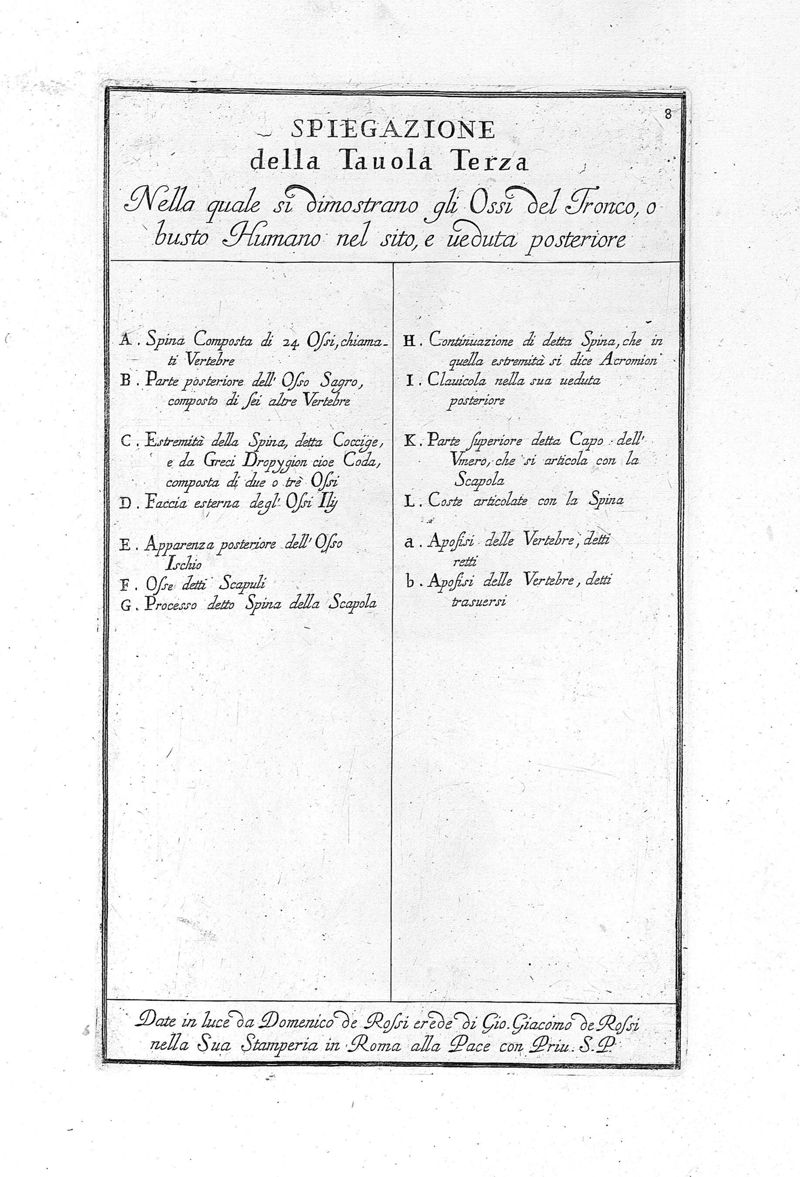 8
SPIEGAZIONE
della Tauola Terza
Nella quale si dimostrano gli Ossi del Tronco, o
busto Humano nel sito, e ueduta posteriore
A. Spina Composta di 24 Oſsi, chiama-
ti Vertebre
B. Parte posteriore dell' Oſso Sagro,
composto di ſei altre Vertebre
C. Estremità della Spina, detta Coccige,
e da Greci Dropygion cioe Coda,
composta di due o trè Oſsi
D. Faccia esterna degl' Oſsi Ilij
E. Apparenza posteriore dell' Oſso
Ischio
F. Oſse detti Scapuli
G. Processo detto Spina della Scapola
H. Continuazione di detta Spina, che in
quella estremità si dice Acromion
I. Clauicola nella sua ueduta
posteriore
K. Parte ſuperiore detta Capo dell'
Vmero, che si articola con la
Scapola
L. Coste articolate con la Spina
a. Apofisi delle Vertebre, detti
retti
b. Apofisi delle Vertebre, detti
trasuersi
Date in luce da Domenico de Roſsi erede di Gio. Giacomo de Roſsi
nella Sua Stamperia in Roma alla Pace con Priu. S. P.